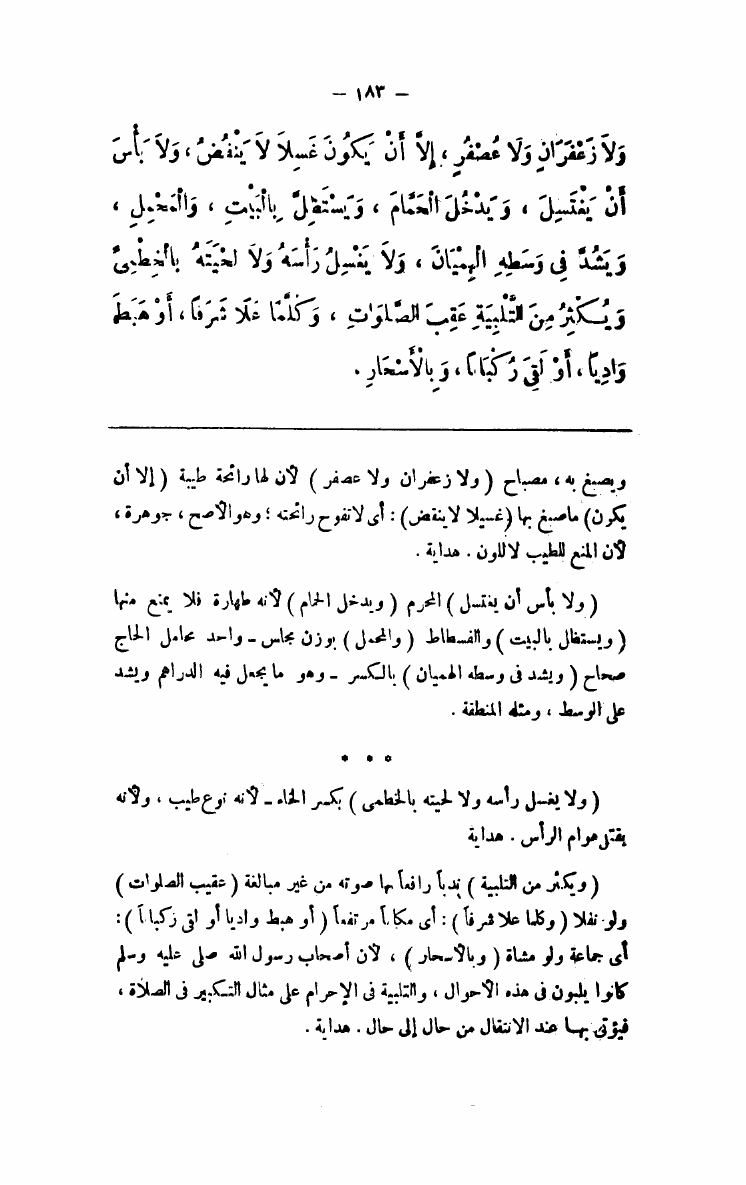 — ١٨٣ —
وَلاَ زَعْفَرَانٍ وَلاَ عُصْفُرٍ، إِلاَّ أَنْ يَكُونَ غَسِيلاَ لاَ يَنْفُضُ، وَلاَ بَأْسَ
أَنْ يَغْتَسِلَ ، وَيَدْخُلَ الْحَمَّامَ ، وَيَسْتَظِلَّ بِالْبَيْتِ ، وَالْمَحْمِلِ ،
وَيَشُدَّ فِى وَسَطِهِ الْهِمْيَانَ ، وَلاَ يَغْسِلُ رَأْسَهُ وَلاَ لِحْيَتَهُ بِالْخِطْمِىِّ
وَيُكْثِرُ مِنَ التَّلْبِيَةِ عَقِبَ الصَّلَوَاتِ ، وَكُلَّمَا عَلاَ شَرَفاً ، أَوْ هَبَطَ
وَادِياً ، أَوْ لَقِىَ رُكْبَاناً ، وَبِالْأَسْحَارِ .
ويصبغ به ، مصباح ( ولا زعفران ولا عصفر ) لأن لها رائحة طيبة ( إلا أن
يكون) ماصبغ بها (غسيلا لا ينفض) : أى لاتفوح رائحته ؛ وهو الأصح ، جوهرة ،
لأن المنع للطيب لا للون . هداية .
( ولا بأس أن يغتسل ) المحرم ( ويدخل الحمام ) لأنه طهارة فلا يمنع منها
( ويستظل بالبيت ) والفسطاط ( والمحمل ) بوزن مجلس ــ واحد محامل الحاج
صحاح ( ويشد فى وسطه الهميان ) بالكسر ــ وهو ما يجعل فيه الدراهم ويشد
على الوسط ، ومثله المنطقة .
* * *
( ولا يغسل رأسه ولا لحيته بالخطمى ) بكسر الخاء ــ لأنه نوع طيب ، ولأنه
يقتل هوام الرأس . هداية
( ويكثر من التلبية ) ندباً رافعاً بها صوته من غير مبالغة ( عقيب الصلوات )
ولو نفلا ( وكلما علا شرفاً ) : أى مكاناً مرتفعاً ( أو هبط واديا أو لقى ركباناً ) :
أى جماعة ولو مشاة ( وبالأسحار ) ، لأن أصحاب رسول الله صلى عليه وسلم
كانوا يلبون فى هذه الأحوال ، والتلبية فى الإحرام على مثال التكبير فى الصلاة ،
فيؤتى بها عند الانتقال من حال إلى حال . هداية .